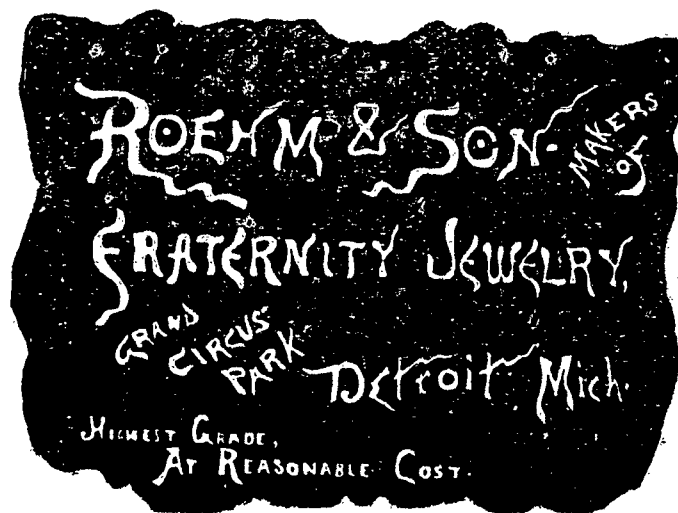 ROEHM & SON. MAKERS OF
FRATERNITY JEWELRY,
GRAND
CIRCUS
PARK
Detroit Mich.
HIGHEST GRADE,
AT REASONABLE COST.